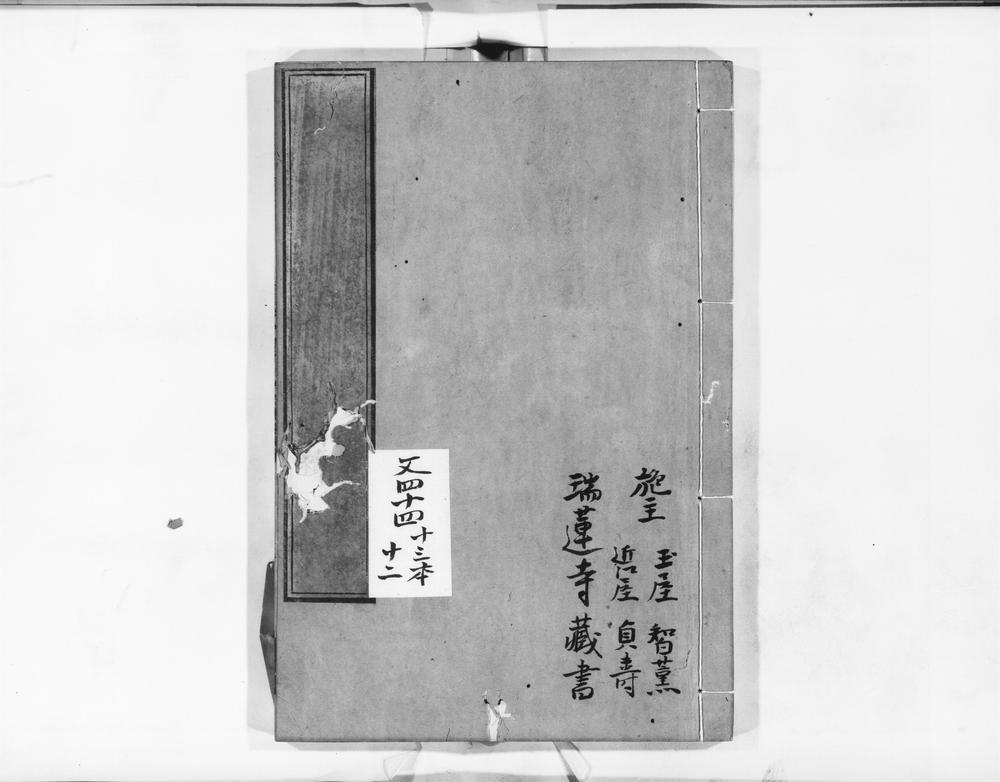 施主
玉屋 智薫
近江屋 貞壽
瑞蓮寺藏書
文四十四
十三本
十二